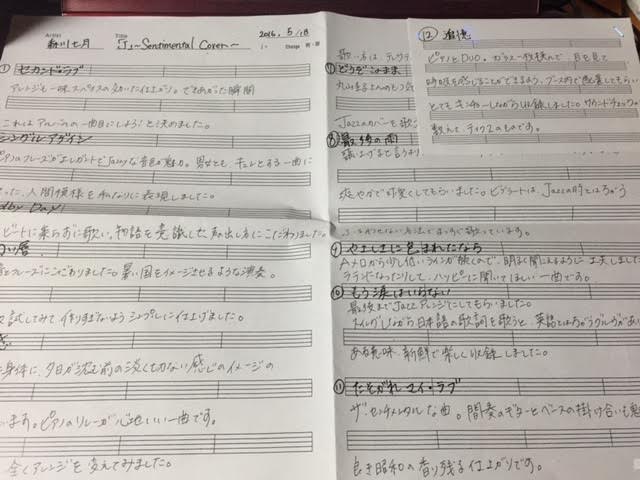 Artist
Title
森川七月
「J」~Sentimental Cover~
2016. 5/18
① セカンドラブ
アレンジも一味スパイスの効いた仕上り。できあがった瞬間
これはアルバムの一曲目にしよう!と決めました。
シングルアゲイン
ピアノフレーズがエレガントでJazzyな音色が魅力。男女とも、キュンとする一曲に
った、人間模様を私なりに表現しました。
dby Day
ビートに乗らずに歌い、物語を意識した声の出し方にこだわりました。
い暦
フレーズにこだわりました。暑い国をイメージさせるような演奏。
試してみて、作りすぎないようシンプルに仕上げました。
身体に、夕日が沈む前の淡く切ない感じのイメージの
います。ピアノのリレーが心地いい一曲です。
全くアレンジを変えてみました。
歌い方は、
⑦ どうぞこのまま
Jazzのカバーを歌
⑧ 最後の雨
爽やかで
してもらいました。ビブラートは、Jazzの時とはちがう
歌っています。
⑨ やさしさに包まれたなら
Aメロから少し低いラインが続くので、明るく聞こえるように工夫しました
ラテンになったりして、ハッピーに聞いてほしい一曲です。
⑩ もう涙はいらない
最後までJazzアレンジにしてもらいました。
スイングしながら日本語の歌詞を歌うと、英語とはちがうグルーヴがあり
ある意味、新鮮で楽しく収録しました。
⑪ たそがれマイ・ラブ
ザ・センチメンタルな曲。間奏のギターとベースの掛け合いも
良き昭和の香り残る仕上がりです。
⑫ 追憶
ピアノとDUO。ガラス一枚挟んで、目を見て
呼吸を感じることができるよう、ブース内で配置してもらい
とてもキンチョーしながら収録しました。サウンドチェックを
数えて、テイク2のものです。